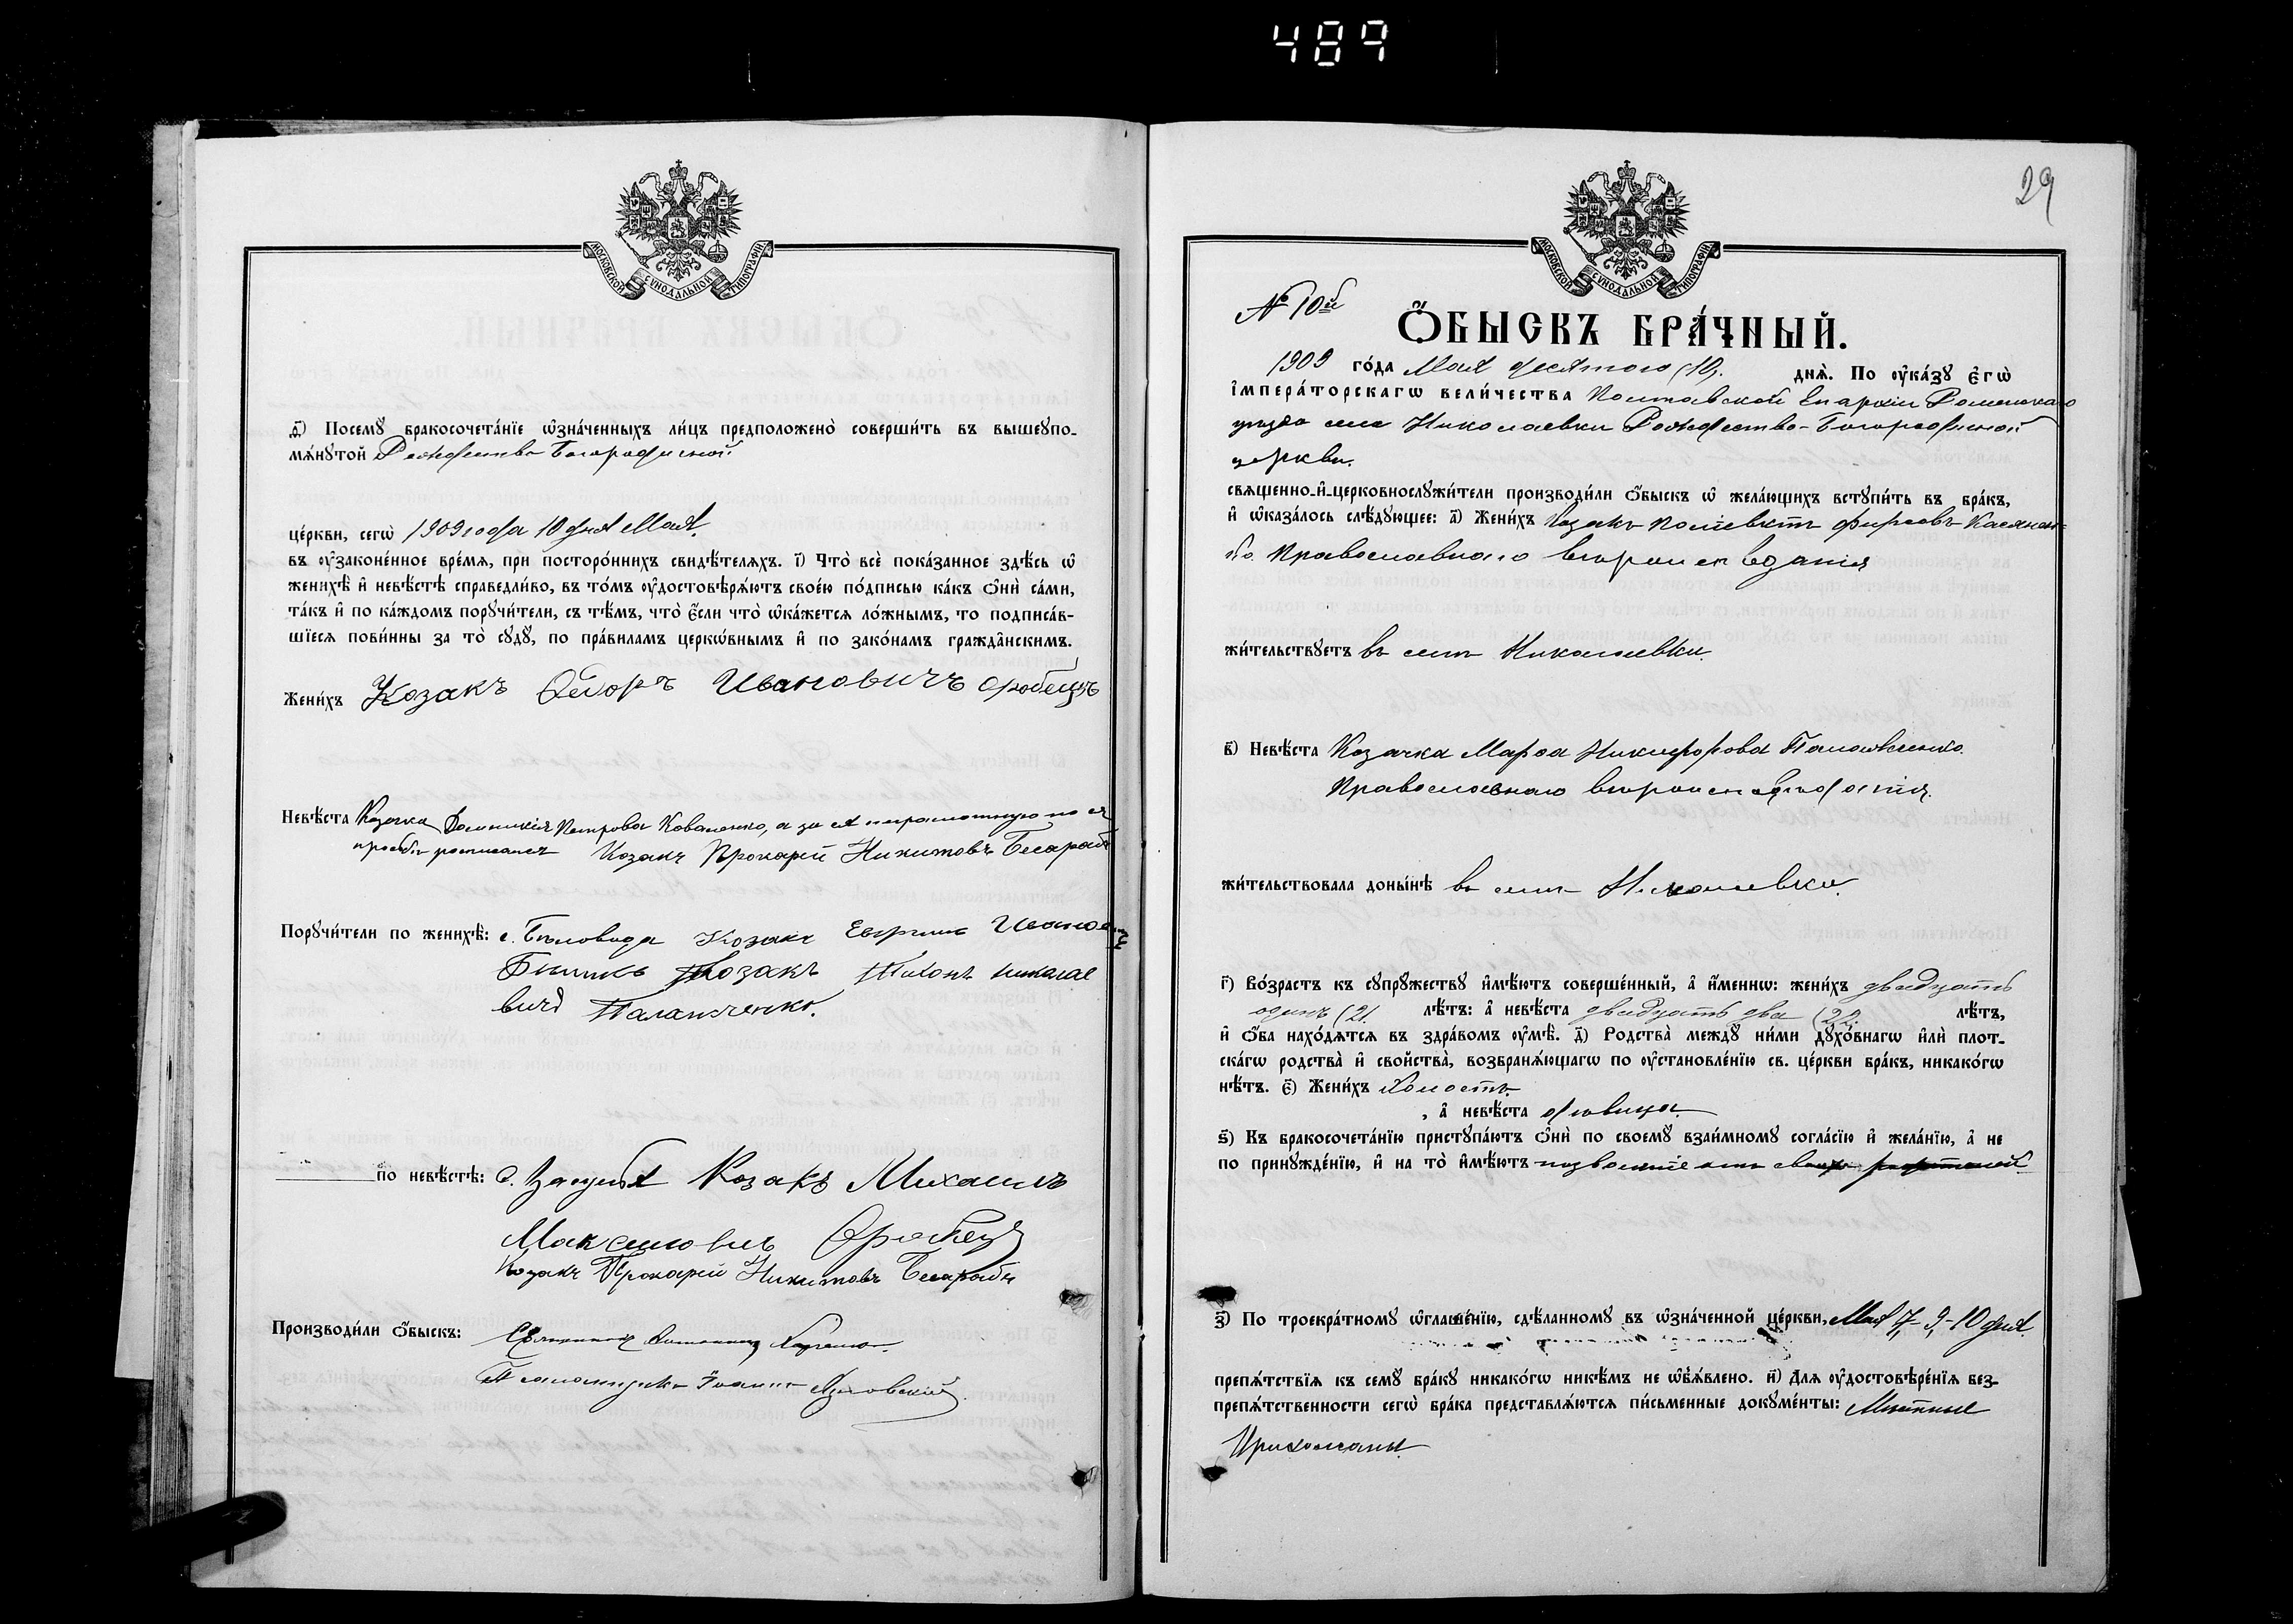 489
МОСКОВСКОЙ СУНОДАЛЬНОЙ ТИПОГРАФІИ
ѳ҃) Посемꙋ̀ бракосочета́нїе ѡ҆зна́ченныхъ ли́цъ предположено̀ соверши́ть въ вышеꙋпо-
мѧ́нꙋтой Рождество-Богородичной
це́ркви, сегѡ̀ 1909 года 10 дня Мая.
въ ᲂу҆зако́ненное вре́мѧ, при посторо́ннихъ свидѣ́телѧхъ. і҃) Что̀ всѐ пока́занное здѣ́сь ѡ҆
женихѣ̀ и҆ невѣ́стѣ справедли́во, въ то́мъ ᲂу҆достовѣрѧ́ютъ свое́ю по́дписью ка́къ ѻ҆нѝ са́ми,
та́къ и҆ по ка́ждомъ порꙋчи́тели, съ тѣ́мъ, что̀ є҆́сли что̀ ѡ҆ка́жетсѧ ло́жнымъ, то подписа́в-
шїесѧ пови́нны за то̀ сꙋдꙋ̀, по пра́виламъ церко́внымъ и҆ по зако́намъ гражда̑нскимъ.
Жени́хъ Козакъ Ѳедоръ Ивановичъ
Невѣ́ста Козачка Домникія Петрова Коваленко, а за ея неграмотную по ея
просьбѣ росписался Козакъ Прокофій Никитовъ Бесараб
Порꙋчи́тели по женихѣ̀: с. Бѣловода Козакъ Ефримъ Иванов
Козакъ Тихонъ Николае
вичъ
по невѣ́стѣ: с. Козакъ Михаилъ
Максимовичъ
Козакъ Прокофій Никитовъ Бесарабъ
Производи́ли ѻ҆́быскъ: Священникъ
Псаломщикъ Іоаннъ
29
МОСКОВСКОЙ СУНОДАЛЬНОЙ ТИПОГРАФІИ
№ 10й
Ѻ҆́БЫСКЪ БРА́ЧНЫЙ.
1909 го́да Мая десятого (10). днѧ̀. По ᲂу҆ка́зꙋ Є҆гѡ̀
І҆мпера́торскагѡ вели́чества Полтавской Епархіи Роменскаго
уѣзда села Николаевки Рождество-Богородичной
церкви.
свѧщенно-и҆-церковнослꙋжи́тели производи́ли ѻ҆́быскъ ѡ҆ жела́ющихъ встꙋпи́ть въ бра́къ,
и҆ ѡ҆каза́лось слѣ́дꙋющее: а҃) Жени́хъ Козакъ Полієвктъ Фирсовъ Касянен-
ко. Православнаго вѣроисповѣданія
жи́тельствꙋетъ въ селѣ Николаевки.
в҃) Невѣ́ста Козачка Марѳа Никифорова
Православнаго вѣроисповѣданія.
жи́тельствовала доны́нѣ въ селѣ Николаевки.
г҃) Во́зрастъ къ сꙋпрꙋ́жествꙋ и҆мѣ́ютъ соверше́нный, а҆ и҆́меннѡ: жени́хъ двадцать
одинъ (21. лѣ́тъ: а҆ невѣ́ста двадцать два (22. лѣ́тъ,
и҆ ѻ҆́ба нахо́дѧтсѧ въ здра́вомъ ᲂу҆мѣ̀. д҃) Родства̀ междꙋ̀ ни́ми дꙋхо́внагѡ и҆лѝ плот-
ска́гѡ родства̀ и҆ сво́йства, возбранѧ́ющагѡ по ᲂу҆становле́нїю св. це́ркви бра́къ, никако́гѡ
нѣ́тъ. є҃) Жени́хъ холостъ.
, а҆ невѣ́ста дѣвица.
ѕ҃) Къ бракосочета́нїю пристꙋпа́ютъ ѻ҆нѝ по своемꙋ̀ взаи́мномꙋ согла́сїю и҆ жела́нїю, а҆ не
по принꙋжде́нїю, и҆ на то̀ и҆мѣ́ютъ позволеніе отъ своихъ родителей
з҃) По троекра́тномꙋ ѡ҆глаше́нїю, сдѣ́ланномꙋ въ ѡ҆зна́ченной це́ркви, Мая 7, 9, 10 дня
препѧ́тствїѧ къ семꙋ̀ бра́кꙋ никако́гѡ никѣ́мъ не ѡ҆б̾ѧ́влено. и҃) Длѧ ᲂу҆достовѣре́нїѧ без-
препѧ́тственности сегѡ̀ бра́ка представлѧ́ютсѧ пи́сьменные докꙋме́нты: Мѣстные
Прихожаны